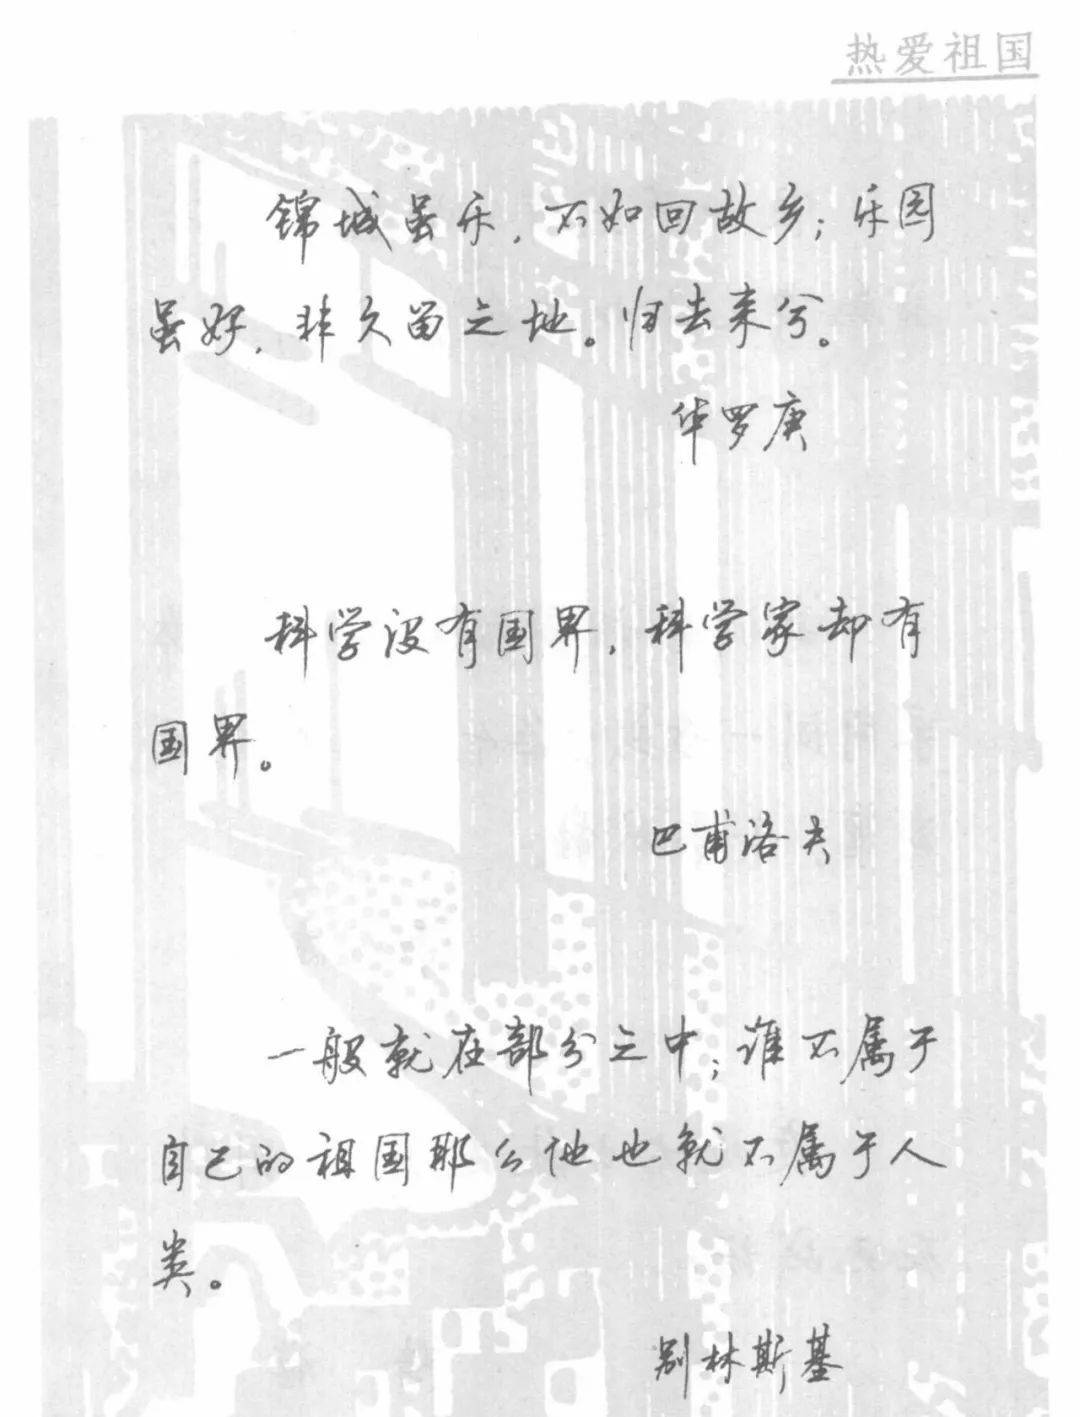 热爱祖国
锦城虽乐，不如回故乡；乐园
虽好，非久留之地。归去来兮。
华罗庚
科学没有国界，科学家却有
国界。
巴甫洛夫
一般就在部分之中；谁不属于
自己的祖国那么他也就不属于人
类。
别林斯基